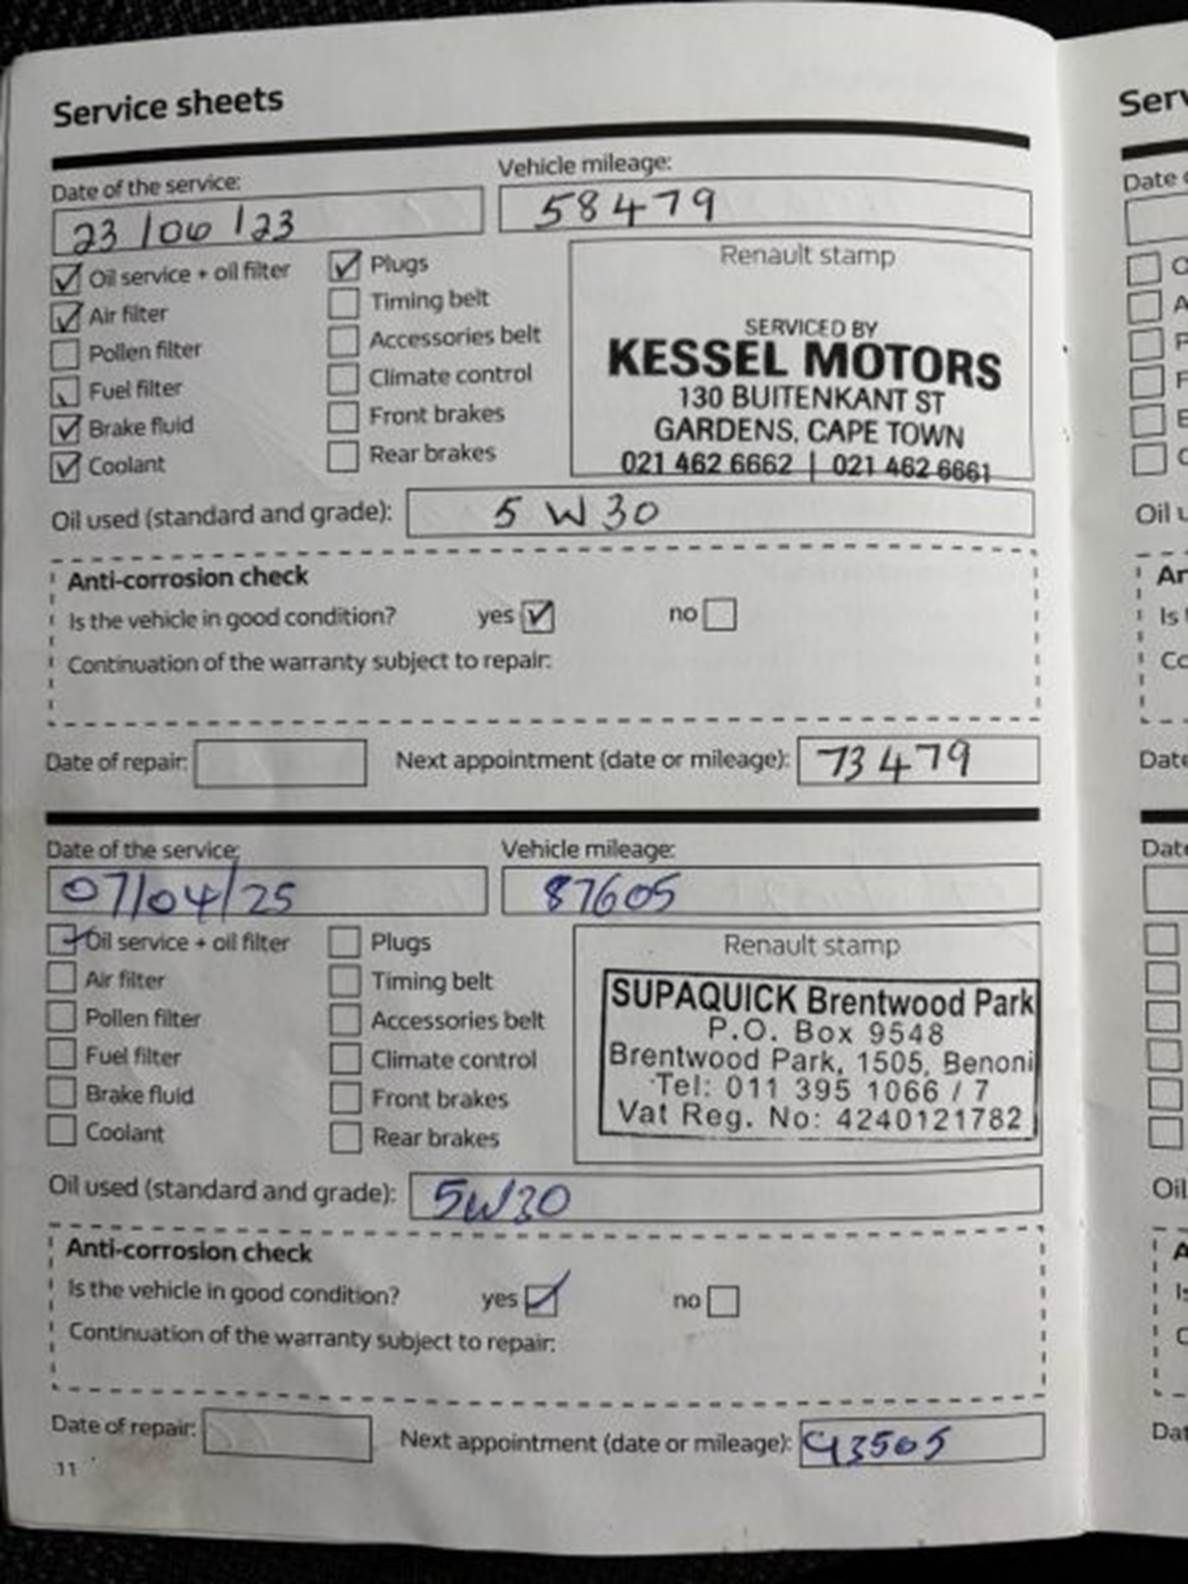 Service sheets
Date of the service:
Vehicle mileage:
23/06/23
58479
Oil service + oil filter
Plugs
Air filter
Timing belt
Pollen filter
Accessories belt
Fuel filter
Climate control
Brake fluid
Front brakes
Coolant
Rear brakes
Renault stamp
SERVICED BY
KESSEL MOTORS
130 BUITENKANT ST
GARDENS, CAPE TOWN
021 462 6662 | 021 462 6661
Oil used (standard and grade): 5 W 30
Anti-corrosion check
Is the vehicle in good condition? yes no
Continuation of the warranty subject to repair:
Date of repair: Next appointment (date or mileage): 73479
Date of the service:
Vehicle mileage:
07/04/25
87605
Oil service + oil filter
Plugs
Air filter
Timing belt
Pollen filter
Accessories belt
Fuel filter
Climate control
Brake fluid
Front brakes
Coolant
Rear brakes
Renault stamp
SUPAQUICK Brentwood Park
P.O. Box 9548
Brentwood Park, 1505, Benoni
Tel: 011 395 1066 / 7
Vat Reg. No: 4240121782
Oil used (standard and grade): 5W30
Anti-corrosion check
Is the vehicle in good condition? yes no
Continuation of the warranty subject to repair:
Date of repair: Next appointment (date or mileage): 93505
11
Serv
Date
Oil u
Date
Date
Oil